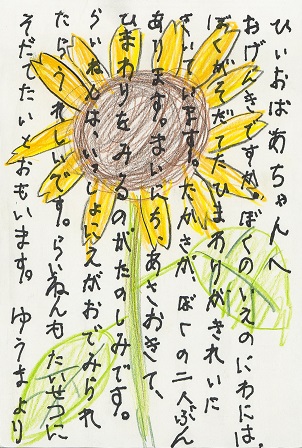 ひいおばあちゃんへ
おげんきですか。ぼくのいえのにわには、
ぼくがそだてたひまわりがきれいに
さいています。たかさが ぼくの二人ぶん
あります。まいにち、あさおきて、
ひまわりをみるのがたのしみです。
らいねんは、いっしょにえがおでみられ
たら、うれしいです。らいねんも たいせつに
そだてたいとおもいます。 ゆうまより